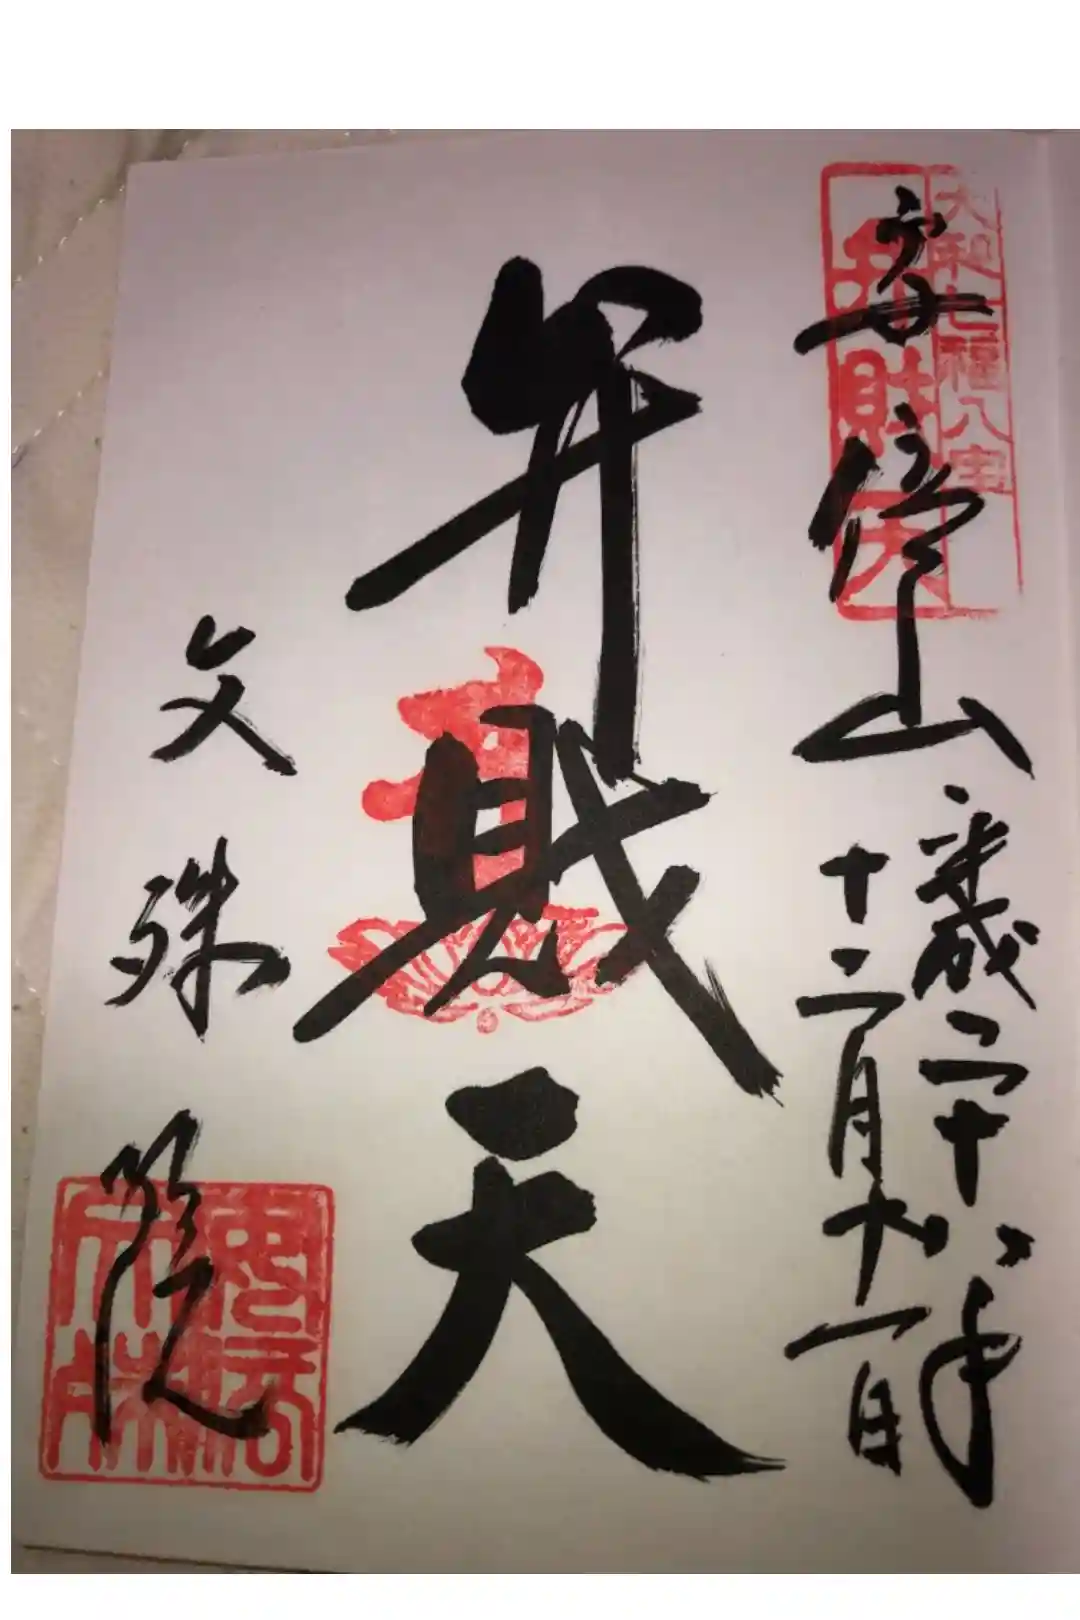 大和七福八宝
弁財天
安倍山
平成二十八年
十二月十一日
弁財天
文殊院